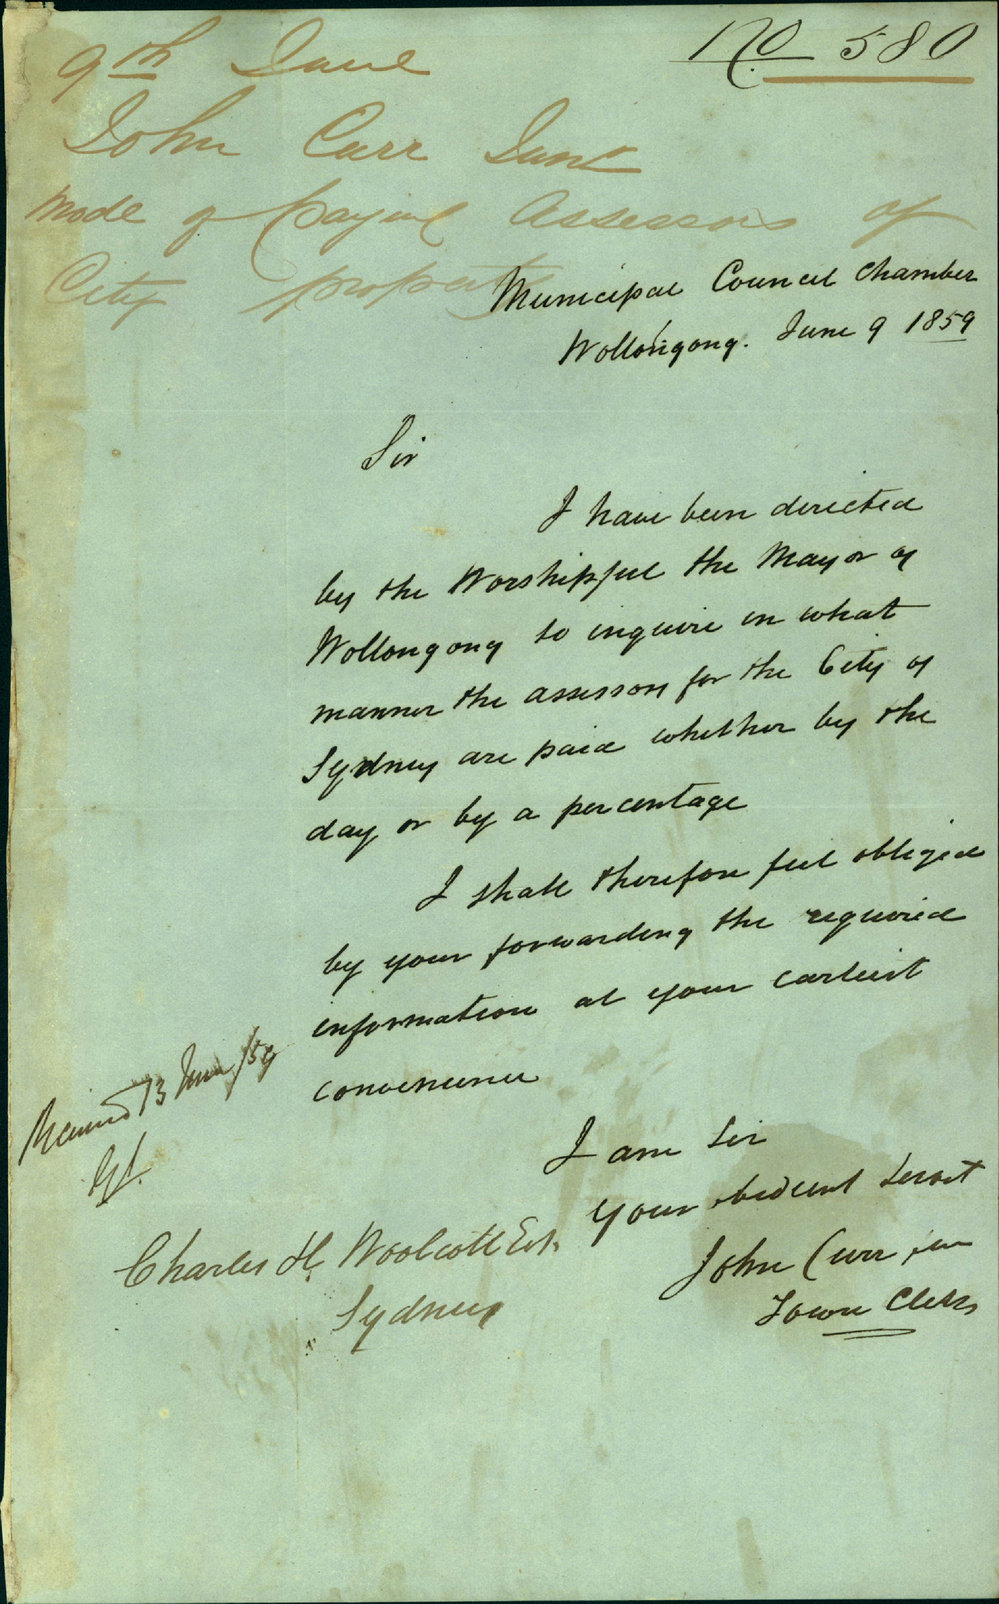 No 580
9th June
John Curr Junr
Mode of paying Assessors of
City property
Municipal Council Chamber
Wollongong. June 9 1859
Sir
I have been directed
by the Worshipful the Mayor of
Wollongong to inquire in what
manner the assessors for the City of
Sydney are paid whether by the
day or by a percentage
I shall therefore feel obliged
by your forwarding the required
information at your earliest
convenience
Received 13 June /59
I am Sir
Your obedient Servt
John Curr jun
Town Clerk
Charles H. Woolcott Esq.
Sydney